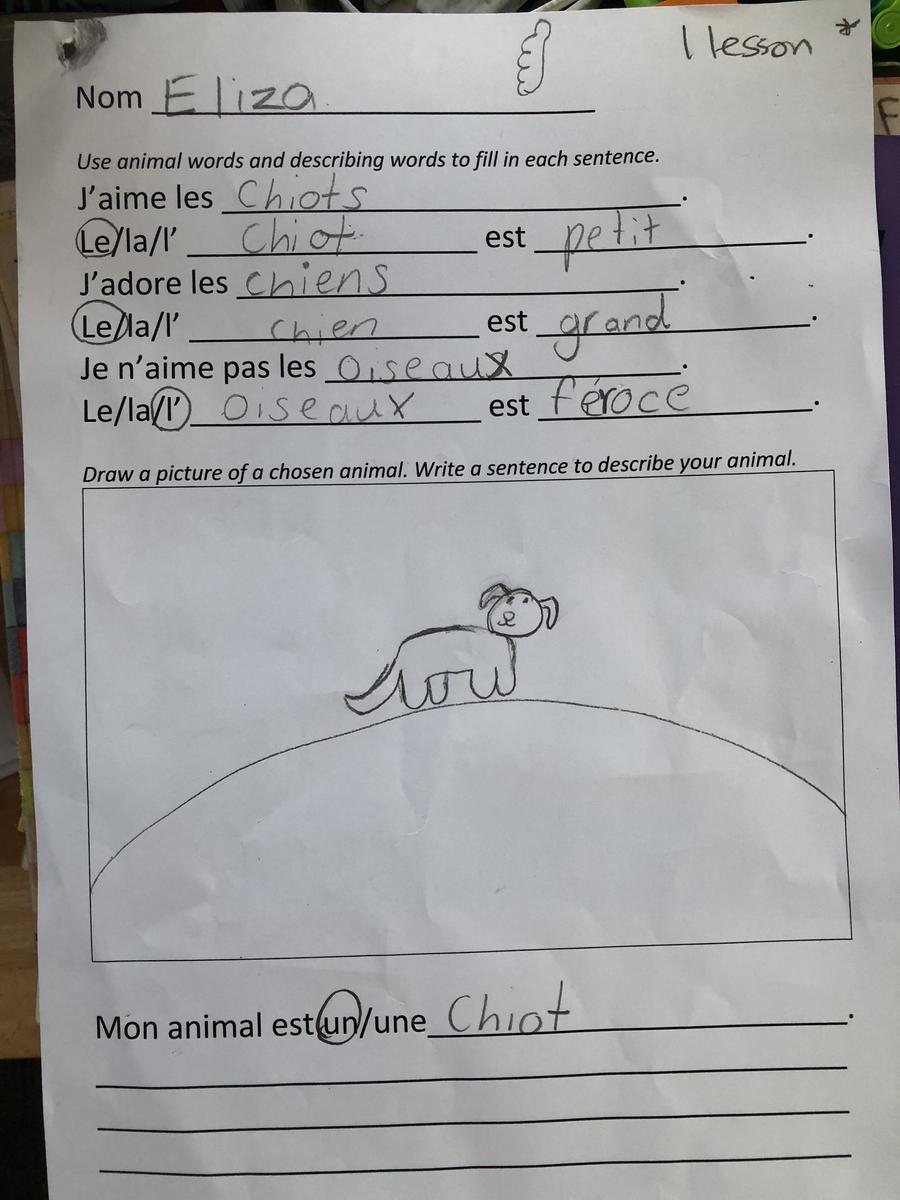 1 lesson *
Nom Eliza
Use animal words and describing words to fill in each sentence.
J'aime les Chiots.
Le/la/l' Chiot est petit.
J'adore les chiens.
Le/la/l' chien est grand.
Je n'aime pas les Oiseaux.
Le/la/l' Oiseaux est féroce.
Draw a picture of a chosen animal. Write a sentence to describe your animal.
Mon animal est un/une Chiot.